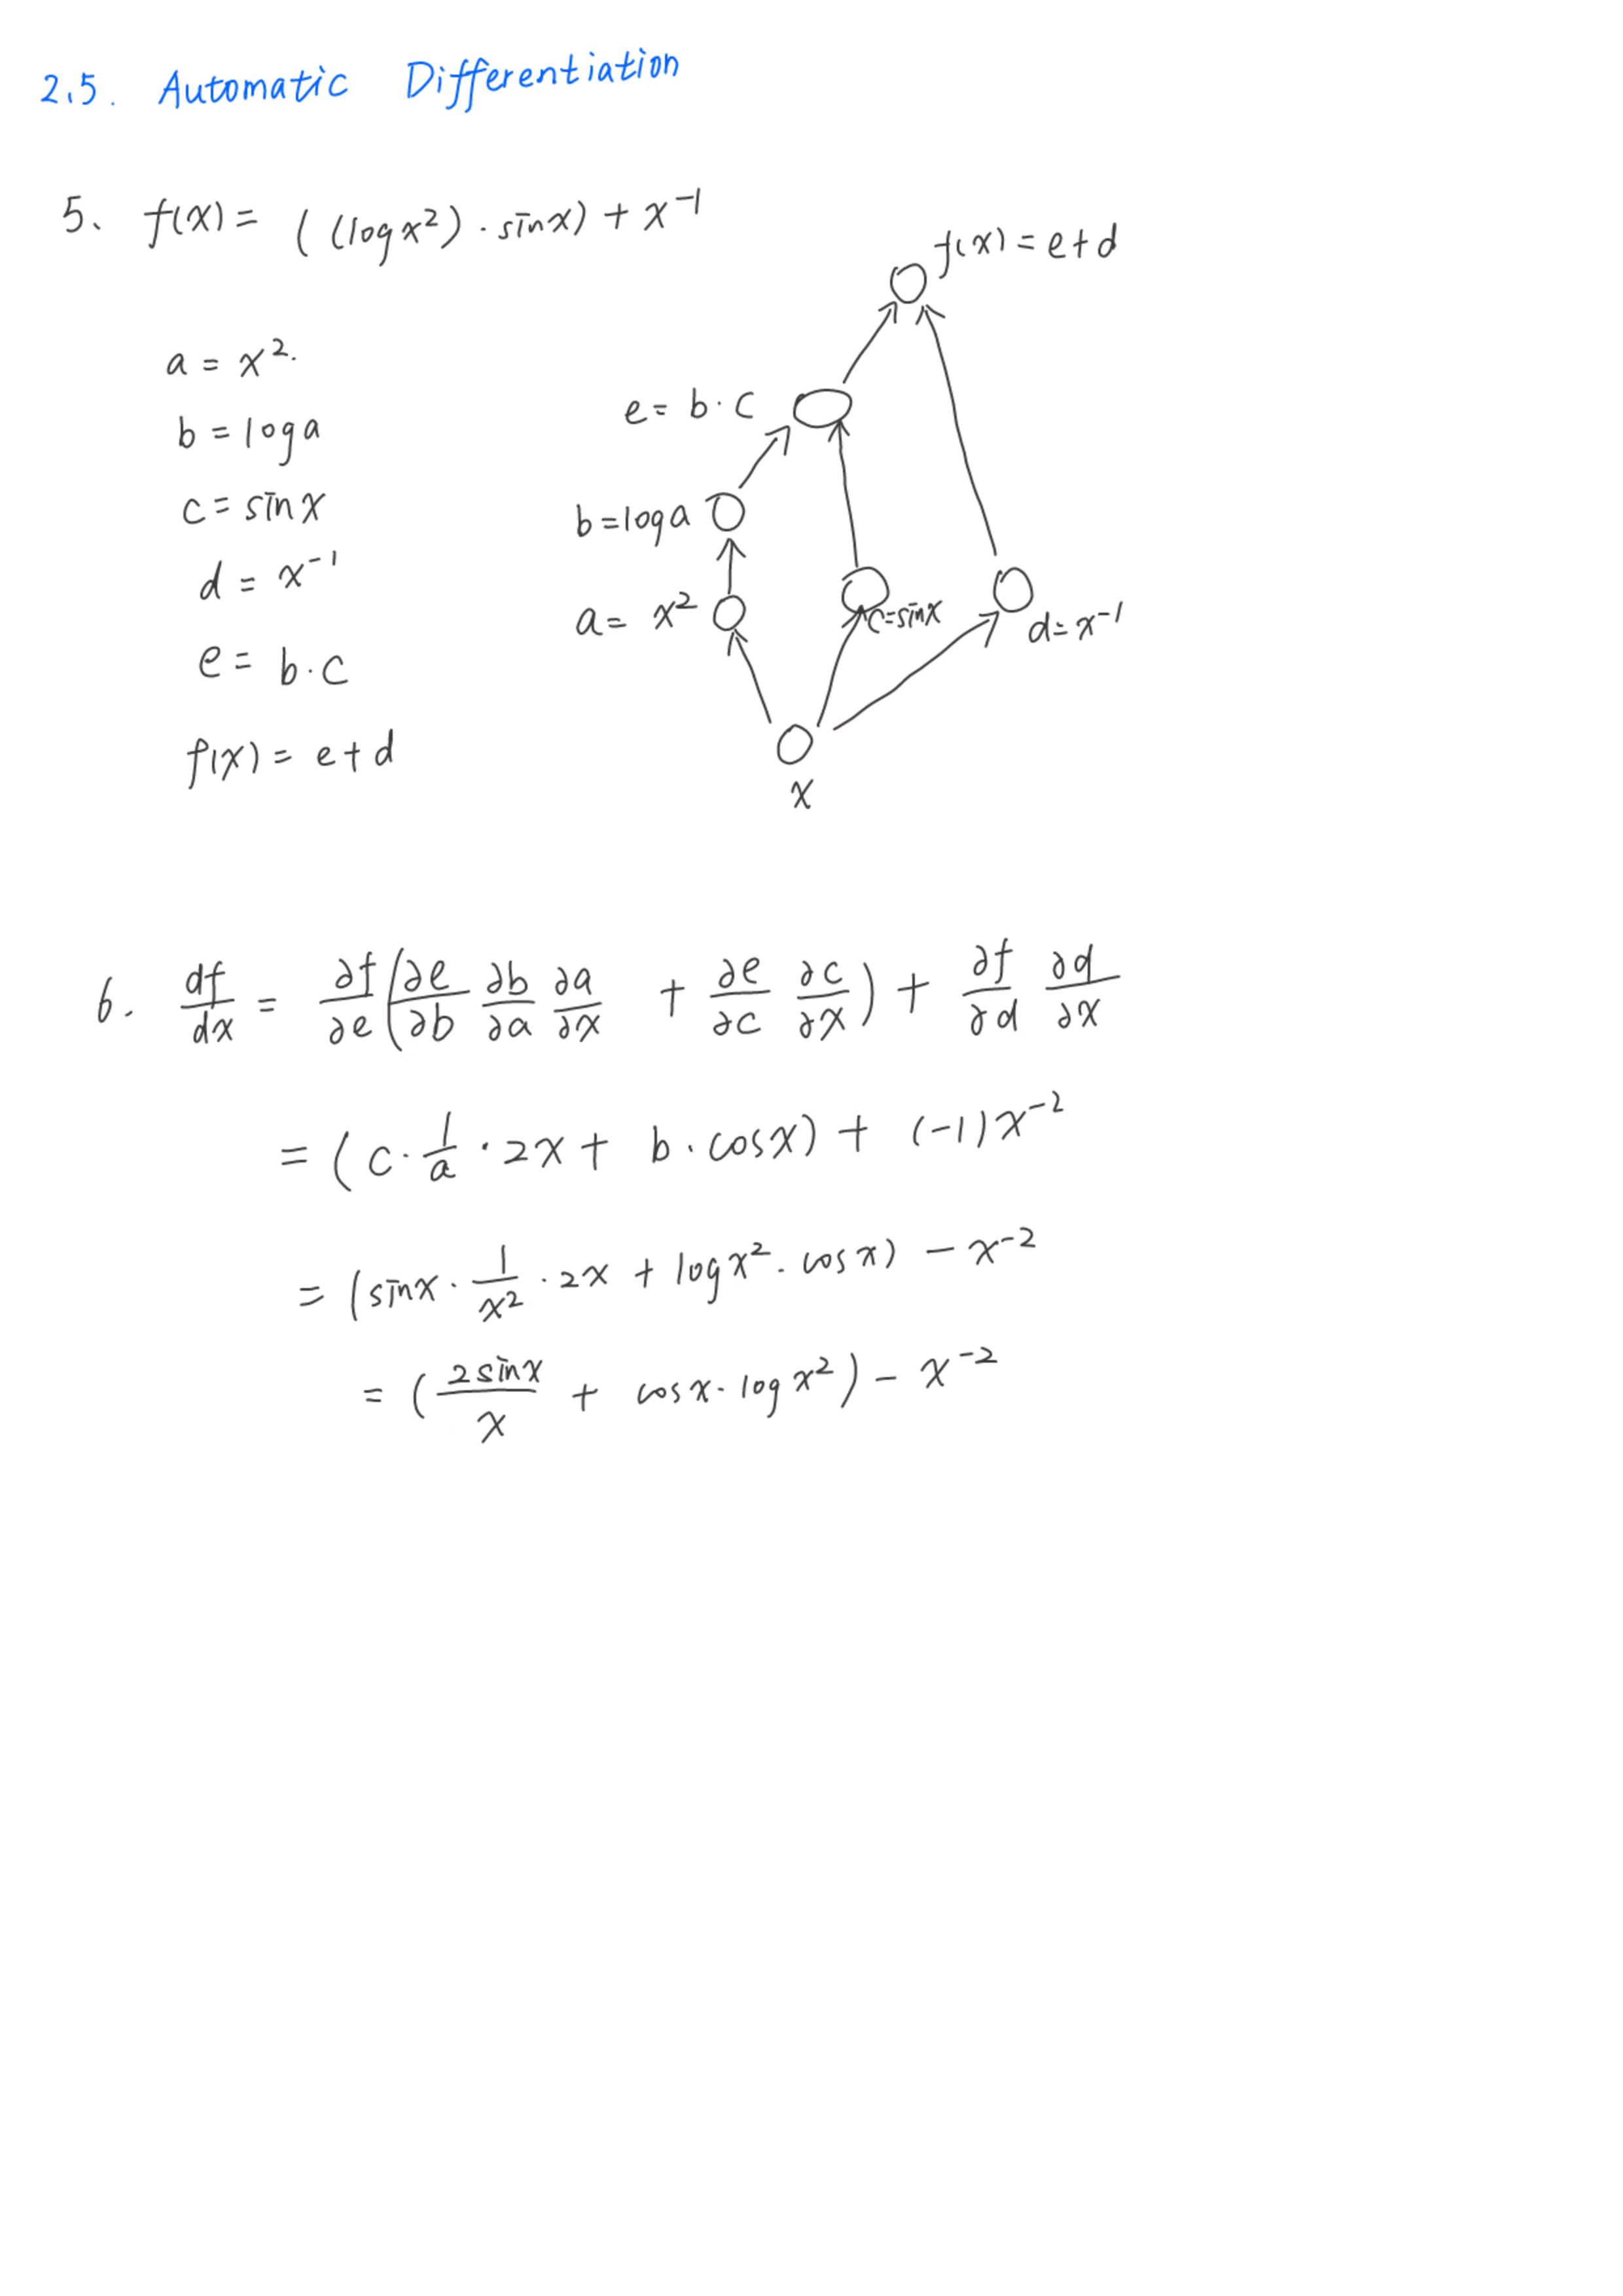 2.5. Automatic Differentiation
5、 f(x) = ((log x²) · sin x) + x⁻¹
a = x².
b = log a
c = sin x
d = x⁻¹
e = b · c
f(x) = e + d
f(x) = e + d
e = b · c
b = log a
a = x²
c = sin x
d = x⁻¹
x
6. df/dx = ∂f/∂e (∂e/∂b ∂b/∂a ∂a/∂x + ∂e/∂c ∂c/∂x) + ∂f/∂d ∂d/∂x
= (c · 1/a · 2x + b · cos x) + (-1) x⁻²
= (sin x · 1/x² · 2x + log x² · cos x) - x⁻²
= (2 sin x/x + cos x · log x²) - x⁻²